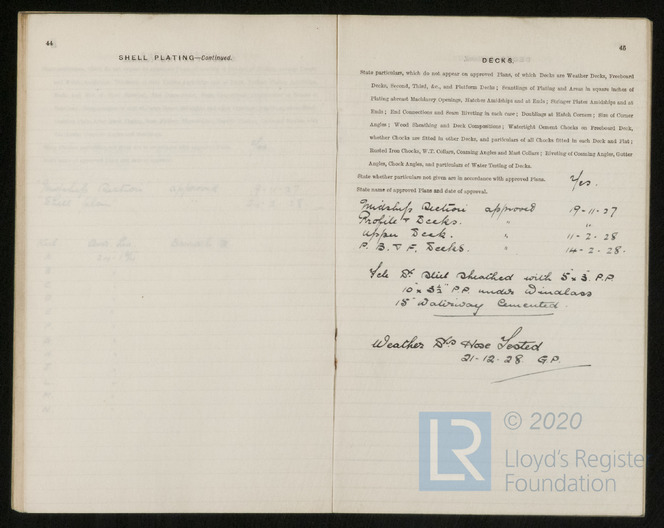 44
SHELL PLATING—Continued.
45
DECKS.
State particulars, which do not appear on approved Plans, of which Decks are Weather Decks, Freeboard
Decks, Second, Third, &c., and Platform Decks; Scantlings of Plating and Areas in square inches of
Plating abreast Machinery Openings, Hatches Amidships and at Ends; Stringer Plates Amidships and at
Ends; End Connections and Seam Riveting in each case; Doublings at Hatch Corners; Size of Corner
Angles; Wood Sheathing and Deck Compositions; Watertight Cement Chocks on Freeboard Deck,
whether Chocks are fitted in other Decks, and particulars of all Chocks fitted in each Deck and Flat;
Busted Iron Chocks, W.T. Collars, Coaming Angles and Mast Collars; Riveting of Coaming Angles, Gutter
Angles, Chock Angles, and particulars of Water Testing of Decks.
State whether particulars not given are in accordance with approved Plans. Yes.
State name of approved Plans and date of approval.
Midship Section approved 19-11-27
Profile & Decks. " "
Upper Deck. " 11-2-28
P. B. & F. Decks. " 14-2-28.
Dk Steel Sheathed with 5" x 3" P.P
10" x 3½" P.P. under Windlass
15" Waterway Cemented.
Weather Dks Hose Tested
21-12-28 G.P.
LR
© 2020
Lloyd's Register
Foundation